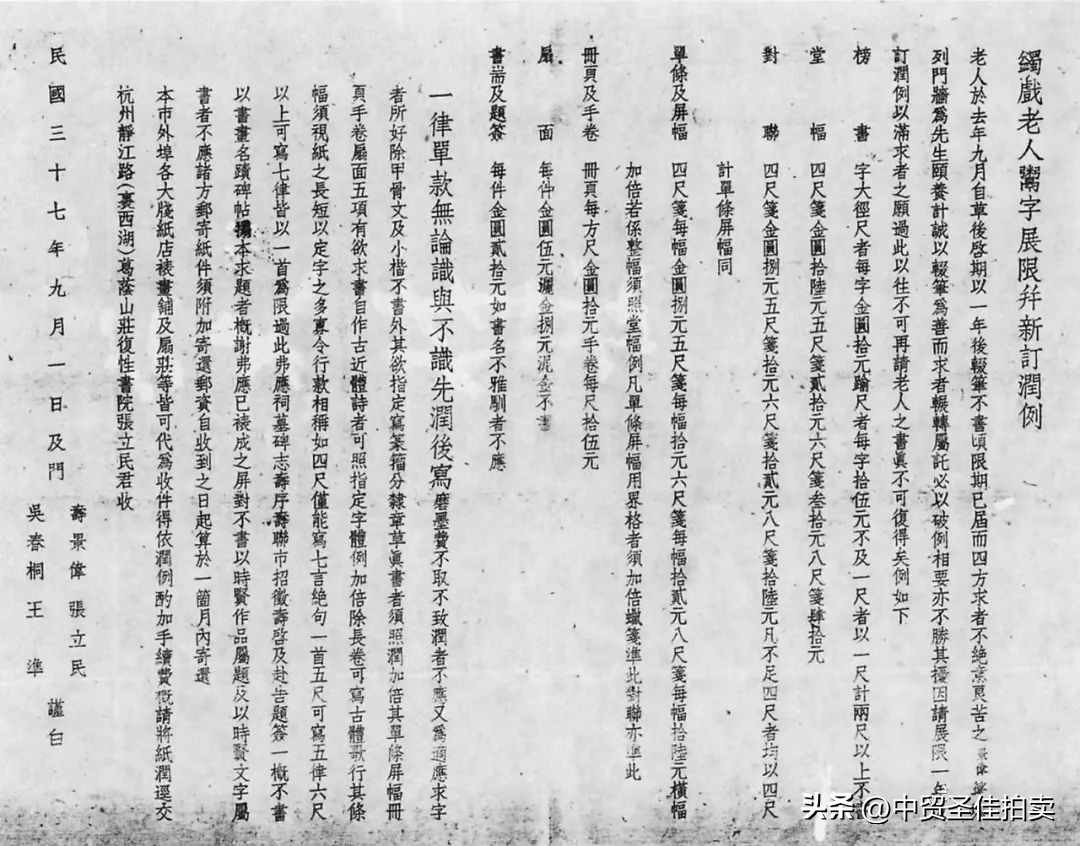 蠲戲老人鬻字展限幷新訂潤例
老人於去年九月自草後啓期以一年後輟筆不書頃限期已屆而四方求者不絕意良苦之景偉等
列門牆爲先生頤養計誠以輟筆爲善而求者輾轉屬託必以破例相要亦不勝其擾因請展限一年
訂潤例以滿求者之願過此以往不可再請老人之書眞不可復得矣例如下
榜書 字大徑尺者每字金圓拾元踰尺者每字拾伍元不及一尺者以一尺計兩尺以上不
堂幅 四尺箋金圓拾陸元五尺箋貳拾元六尺箋叁拾元八尺箋肆拾元
對聯 四尺箋金圓捌元五尺箋拾元六尺箋拾貳元八尺箋拾陸元凡不足四尺者均以四尺
計單條屏幅同
單條及屏幅 四尺箋每幅金圓捌元五尺箋每幅拾元六尺箋每幅拾貳元八尺箋每幅拾陸元橫幅
加倍若係整幅須照堂幅例凡單條屏幅用界格者須加倍蠟箋準此對聯亦準此
冊頁及手卷 冊頁每方尺金圓拾元手卷每尺拾伍元
扇面 每件金圓伍元灑金捌元泥金不書
書耑及題簽 每件金圓貳拾元如書名不雅馴者不應
一律單款無論識與不識先潤後寫磨墨費不取不致潤者不應又爲適應求字
者所好除甲骨文及小楷不書外其欲指定寫篆籀分隸章草眞書者須照潤加倍其單條屏幅冊
頁手卷扇面五項有欲求書自作古近體詩者可照指定字體例加倍除長卷可寫古體歌行其條
幅須視紙之長短以定字之多寡令行款相稱如四尺僅能寫七言絕句一首五尺可寫五律六尺
以上可寫七律皆以一首爲限過此弗應祠墓碑志壽序壽聯市招徵壽啓及赴告題簽一概不書
以書畫名蹟碑帖搨本求題者概謝弗應已裱成之屏對不書以時賢作品屬題及以時賢文字屬
書者不應諸方郵寄紙件須附加寄還郵資自收到之日起算於一箇月內寄還
本市外埠各大牋紙店裱畫舖及扇莊等皆可代爲收件得依潤例酌加手續費概請將紙潤逕交
杭州靜江路(裏西湖)葛蔭山莊復性書院張立民君收
民國三十七年九月一日及門
壽景偉 張立民
吳春桐 王準 謹白
头条 @中贸圣佳拍卖